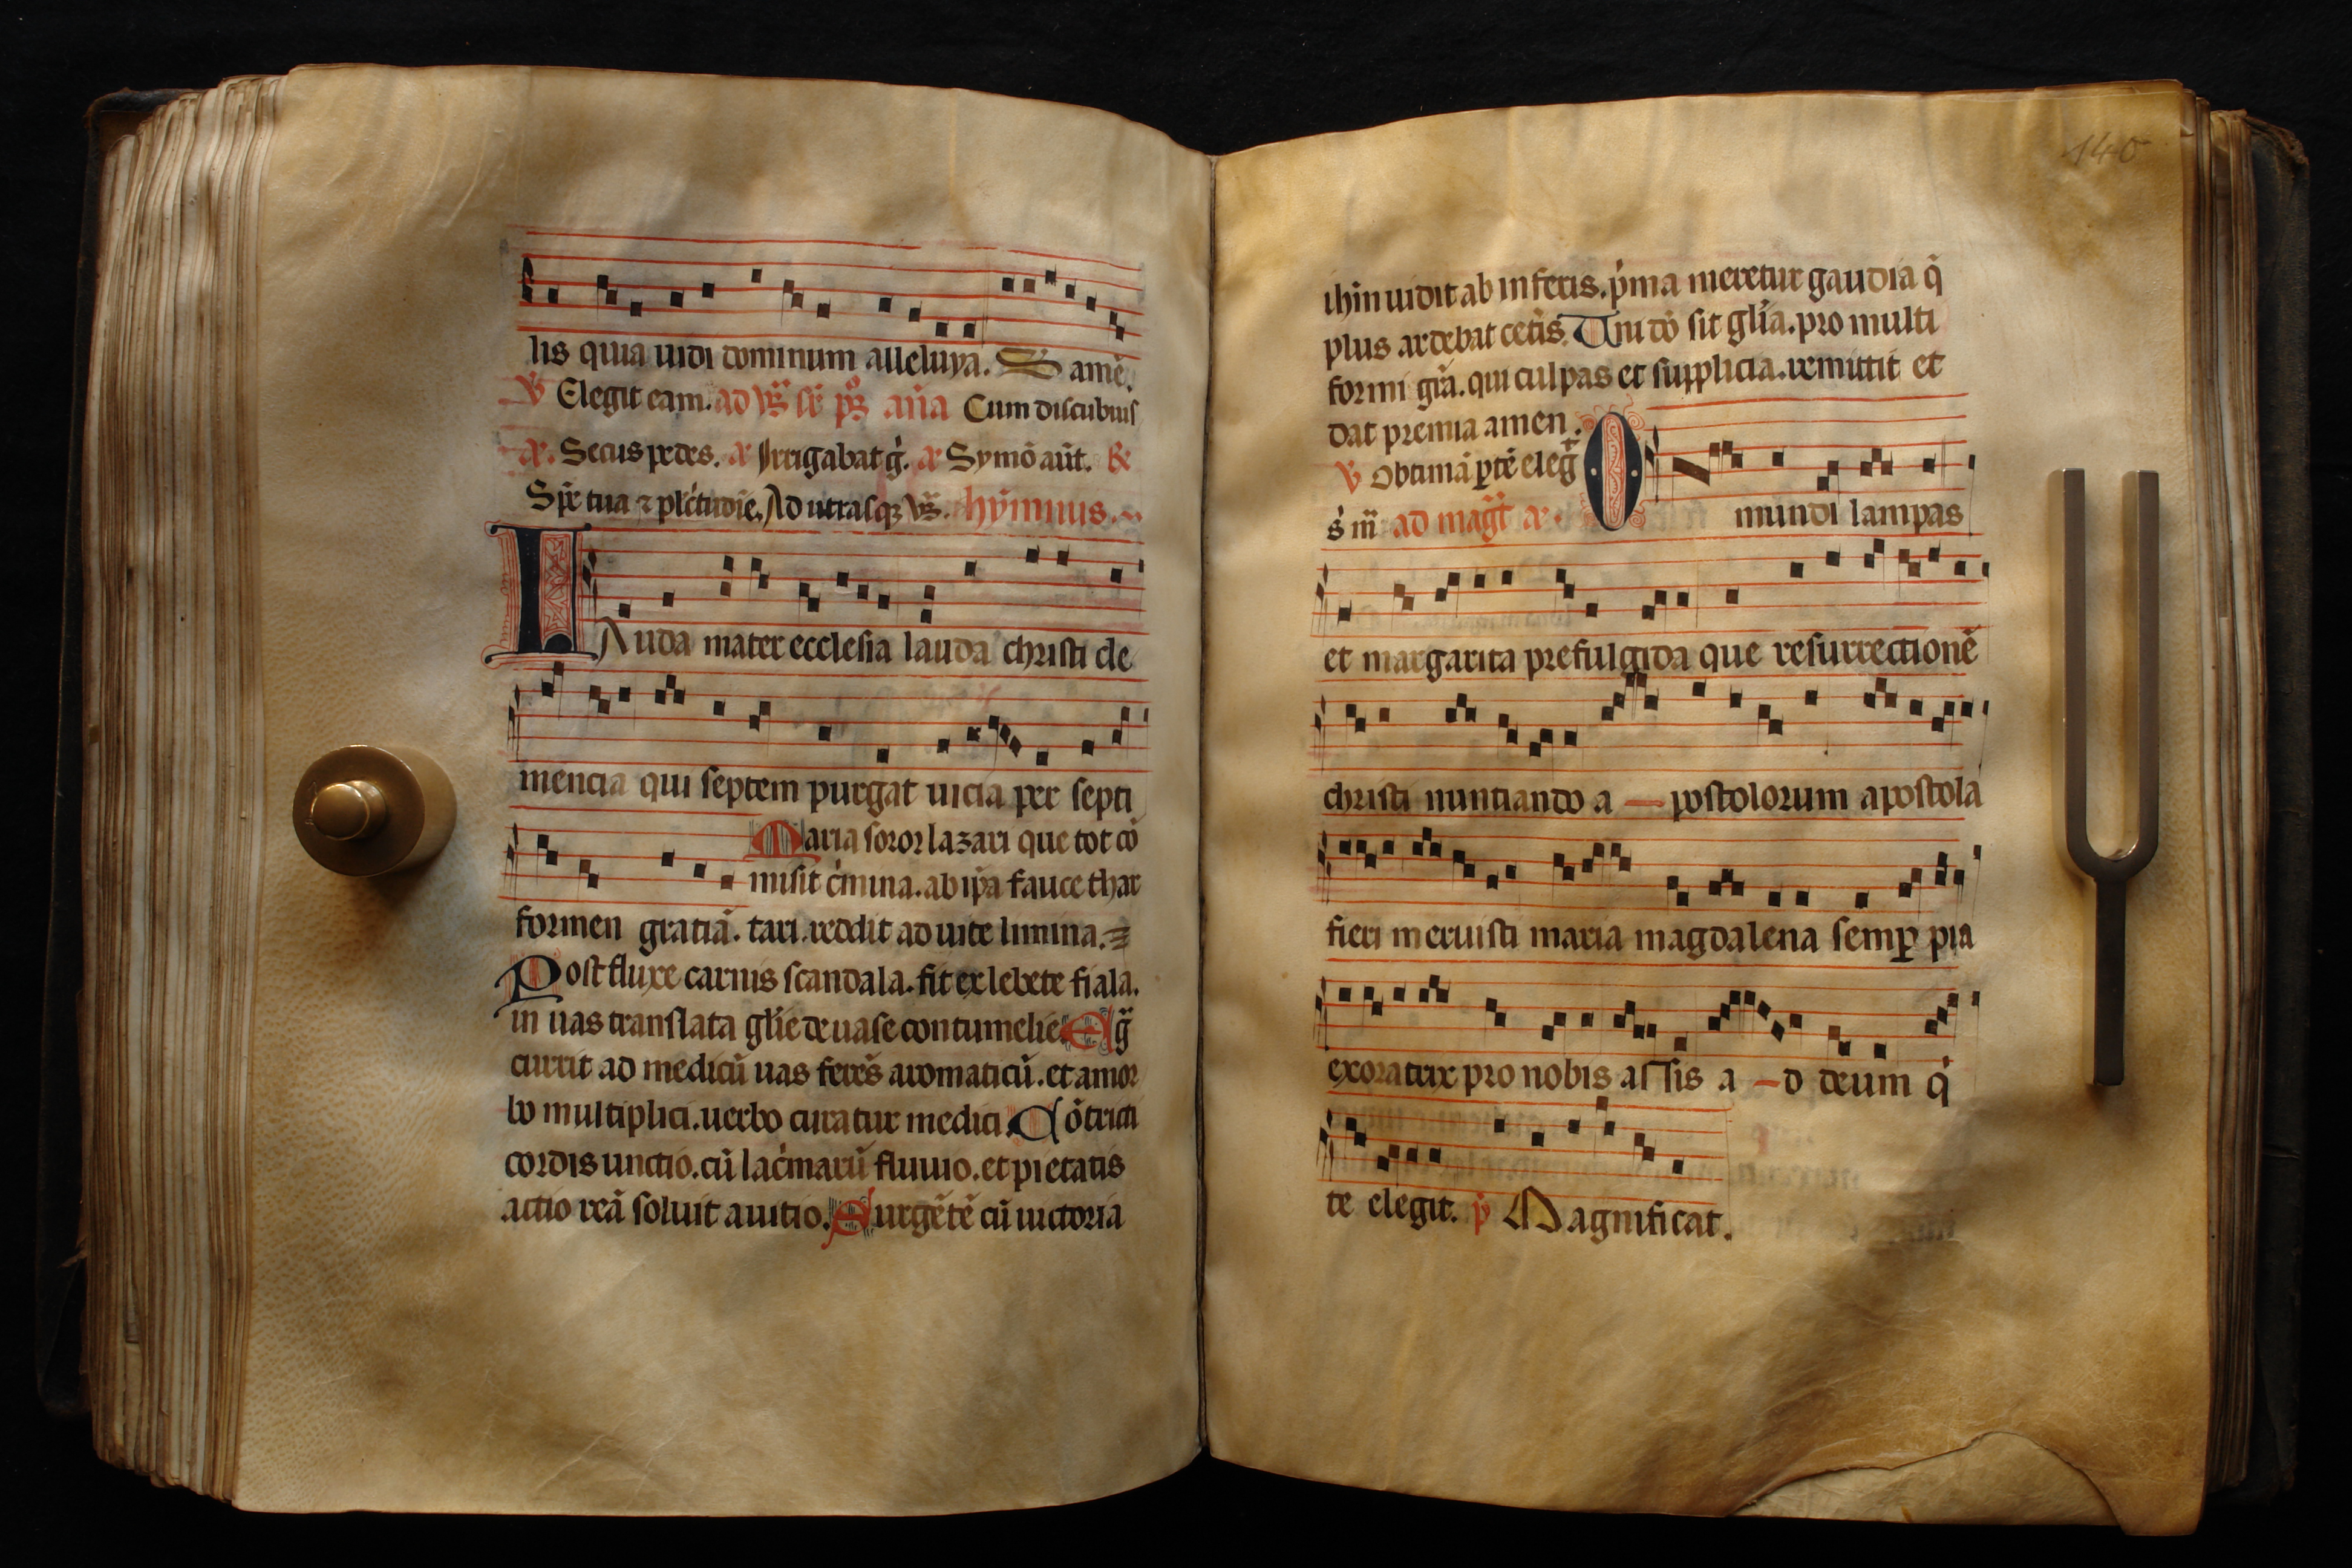 lis quia uidi dominum alleluya. S amē.
℣ Elegit eam. ad v̄s̄ sc̄ pꝫ an̄a Cum discubuiſ
a. Secus pedes. a Irrigabat g̾. a Symō aūt. &
Spē tua ⁊ plc̄tudīe. Ad utrasqꝫ v̄s̄. hȳmnus.
LAuda mater ecclesia lauda christi cle
mencia qui septem purgat uicia per septi
Maria soror lazari que tot cō
misit c̾mina. ab ip̄a fauce thar
formen gratiā. tari. reddit ad uite limina.
Post fluxe carnis scandala. fit ex lebete fiala.
in uas translata gl̄ie de uase contumelie. Eg̾
currit ad medicū uas ferēs aromaticū. et a mor
bo multiplici. uerbo curatur medici. Cōtriti
cordis unctio. cū lac̾marū fluuio. et pietatis
actio reā soluit a uitio. Surgētē cū uictoria
140
ihm̄ uidit ab inferis. p̾ma meretur gaudia q̄
plus ardebat cet̾is. Uni dō sit gl̄ia. pro multi
formi gr̄a. qui culpas et supplicia. remittit et
dat premia amen.
℣ Obtimā ꝑtē eleg̾
s̾ m̄ ad mag̾t a. O mundi lampas
et margarita prefulgida que resurrectionē
christi nuntiando a — postolorum apostola
fieri meruisti maria magdalena semꝑ pia
exoratrix pro nobis assis a — d deum q̄
te elegit. p̄ Magnificat.